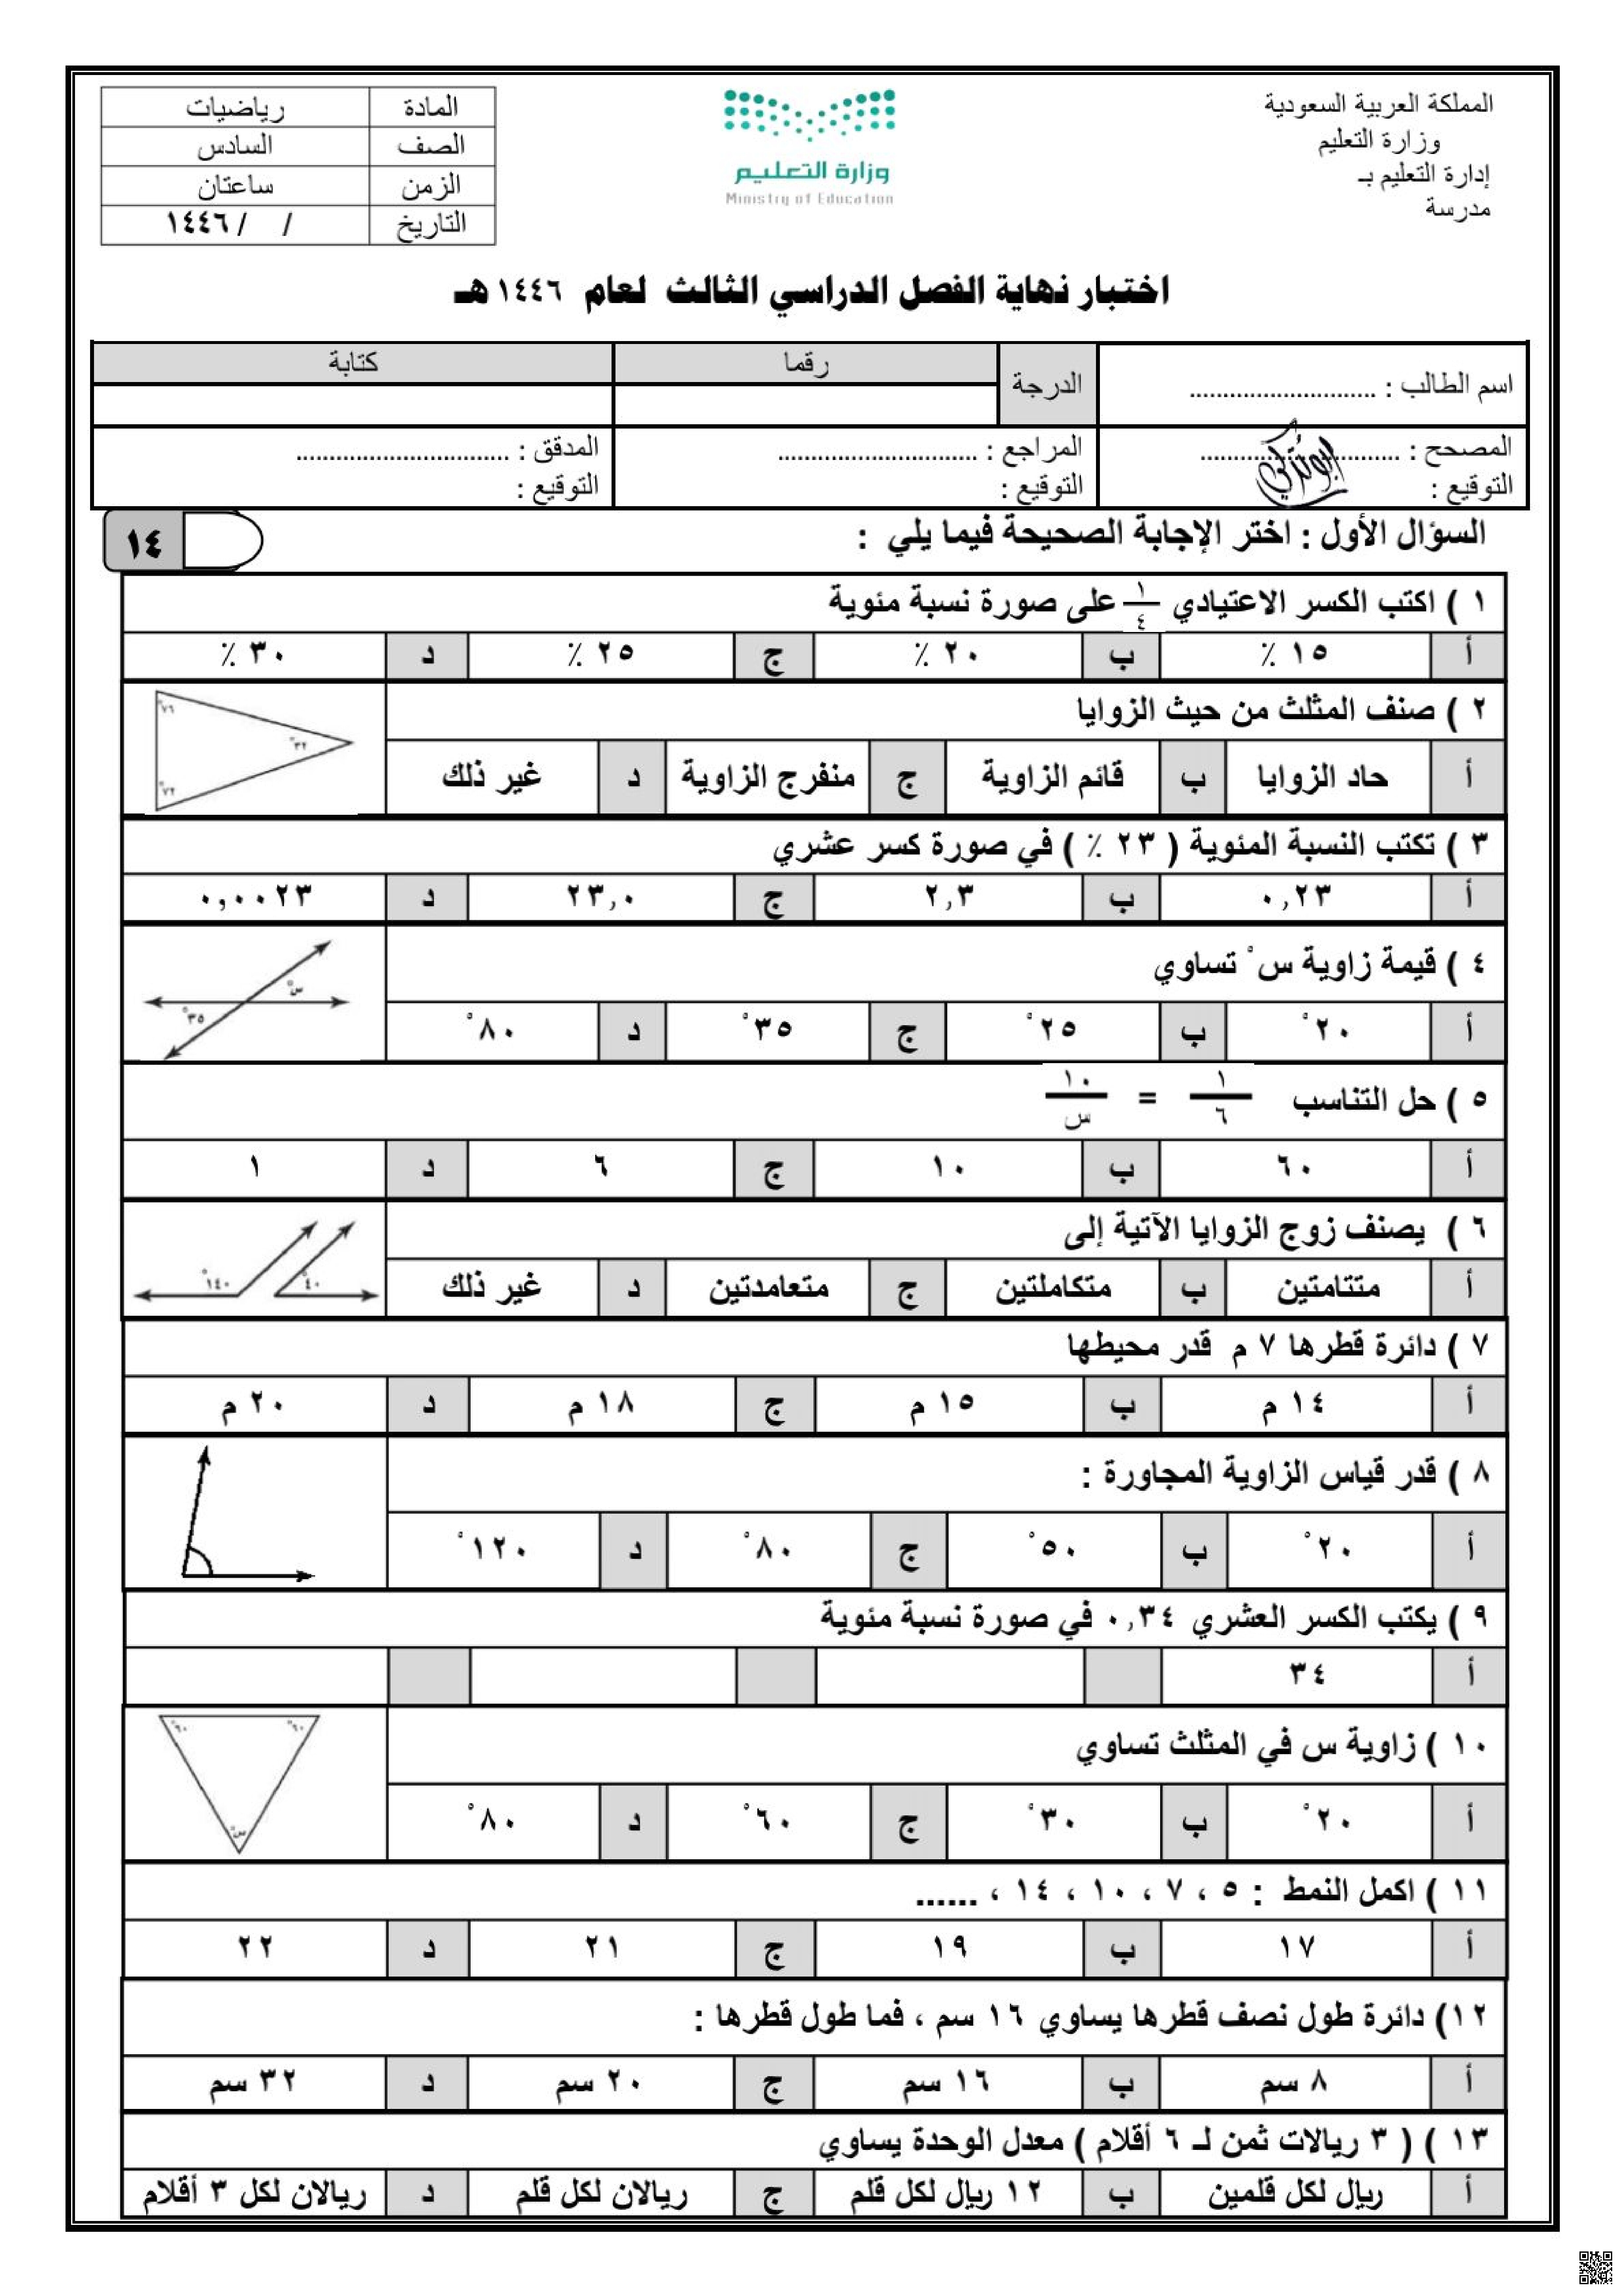 المملكة العربية السعودية
وزارة التعليم
إدارة التعليم بـ
مدرسة
وزارة التعليم
Ministry of Education
المادة رياضيات
الصف السادس
الزمن ساعتان
التاريخ / / ١٤٤٦
اختبار نهاية الفصل الدراسي الثالث لعام ١٤٤٦ هـ
اسم الطالب : ............................ الدرجة رقما كتابة
المصحح : .............................. المراجع : .............................. المدقق : ................................
التوقيع : أبو تركي التوقيع : التوقيع :
السؤال الأول : اختر الإجابة الصحيحة فيما يلي : ١٤
١ ) اكتب الكسر الاعتيادي ١/٤ على صورة نسبة مئوية
أ ١٥ ٪ ب ٢٠ ٪ ج ٢٥ ٪ د ٣٠ ٪
٢ ) صنف المثلث من حيث الزوايا
أ حاد الزوايا ب قائم الزاوية ج منفرج الزاوية د غير ذلك
٧٦° ٣٢° ٧٢°
٣ ) تكتب النسبة المئوية ( ٢٣ ٪ ) في صورة كسر عشري
أ ٠,٢٣ ب ٢,٣ ج ٢٣,٠ د ٠,٠٠٢٣
٤ ) قيمة زاوية س° تساوي
أ ٢٠° ب ٢٥° ج ٣٥° د ٨٠°
س° ٣٥°
٥ ) حل التناسب ١/٦ = ١٠/س
أ ٦٠ ب ١٠ ج ٦ د ١
٦ ) يصنف زوج الزوايا الآتية إلى
أ متتامتين ب متكاملتين ج متعامدتين د غير ذلك
١٤٠° ٤٠°
٧ ) دائرة قطرها ٧ م قدر محيطها
أ ١٤ م ب ١٥ م ج ١٨ م د ٢٠ م
٨ ) قدر قياس الزاوية المجاورة :
أ ٢٠° ب ٥٠° ج ٨٠° د ١٢٠°
٩ ) يكتب الكسر العشري ٠,٣٤ في صورة نسبة مئوية
أ ٣٤
١٠ ) زاوية س في المثلث تساوي
أ ٢٠° ب ٣٠° ج ٦٠° د ٨٠°
٦٠° ٦٠° س°
١١ ) اكمل النمط : ٥ ، ٧ ، ١٠ ، ١٤ ، ......
أ ١٧ ب ١٩ ج ٢١ د ٢٢
١٢) دائرة طول نصف قطرها يساوي ١٦ سم ، فما طول قطرها :
أ ٨ سم ب ١٦ سم ج ٢٠ سم د ٣٢ سم
١٣ ) ( ٣ ريالات ثمن لـ ٦ أقلام ) معدل الوحدة يساوي
أ ريال لكل قلمين ب ١٢ ريال لكل قلم ج ريالان لكل قلم د ريالان لكل ٣ أقلام